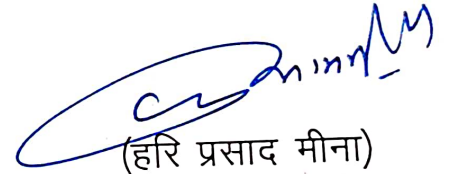 (हरि प्रसाद मीना)